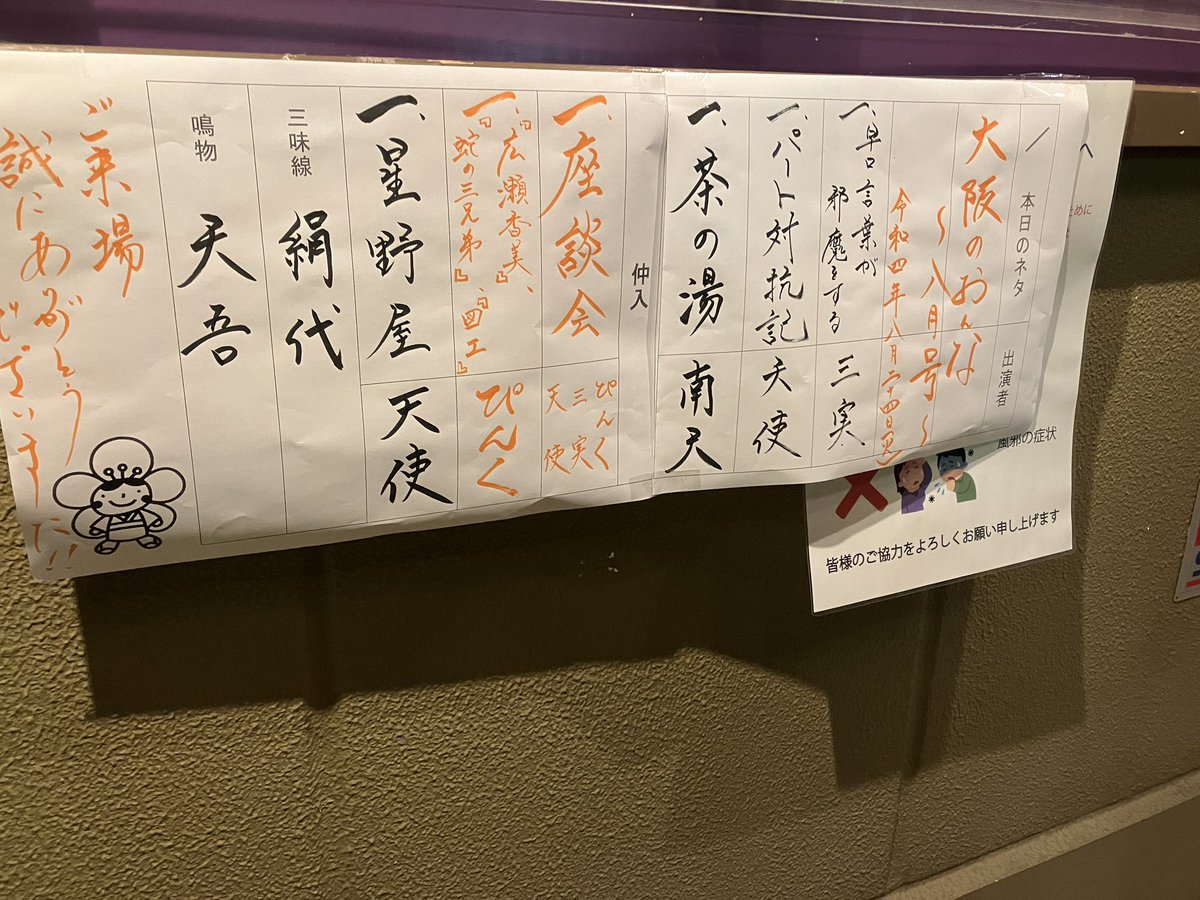 本日のネタ
出演者
大阪のおんな
〜八月号〜
令和四年八月二十四日(水)
一、早口言葉が
邪魔をする
三実
一、パート対抗記
天使
一、茶の湯
南天
仲入
一、座談会
ぴんく
三実
天使
一、『広瀬香美』、
『蛇の三兄弟』、『図工』
ぴんく
一、星野屋
天使
三味線
絹代
鳴物
天吾
ご来場
誠にありがとう
ございました!!
ために
風邪の症状
皆様のご協力をよろしくお願い申し上げます